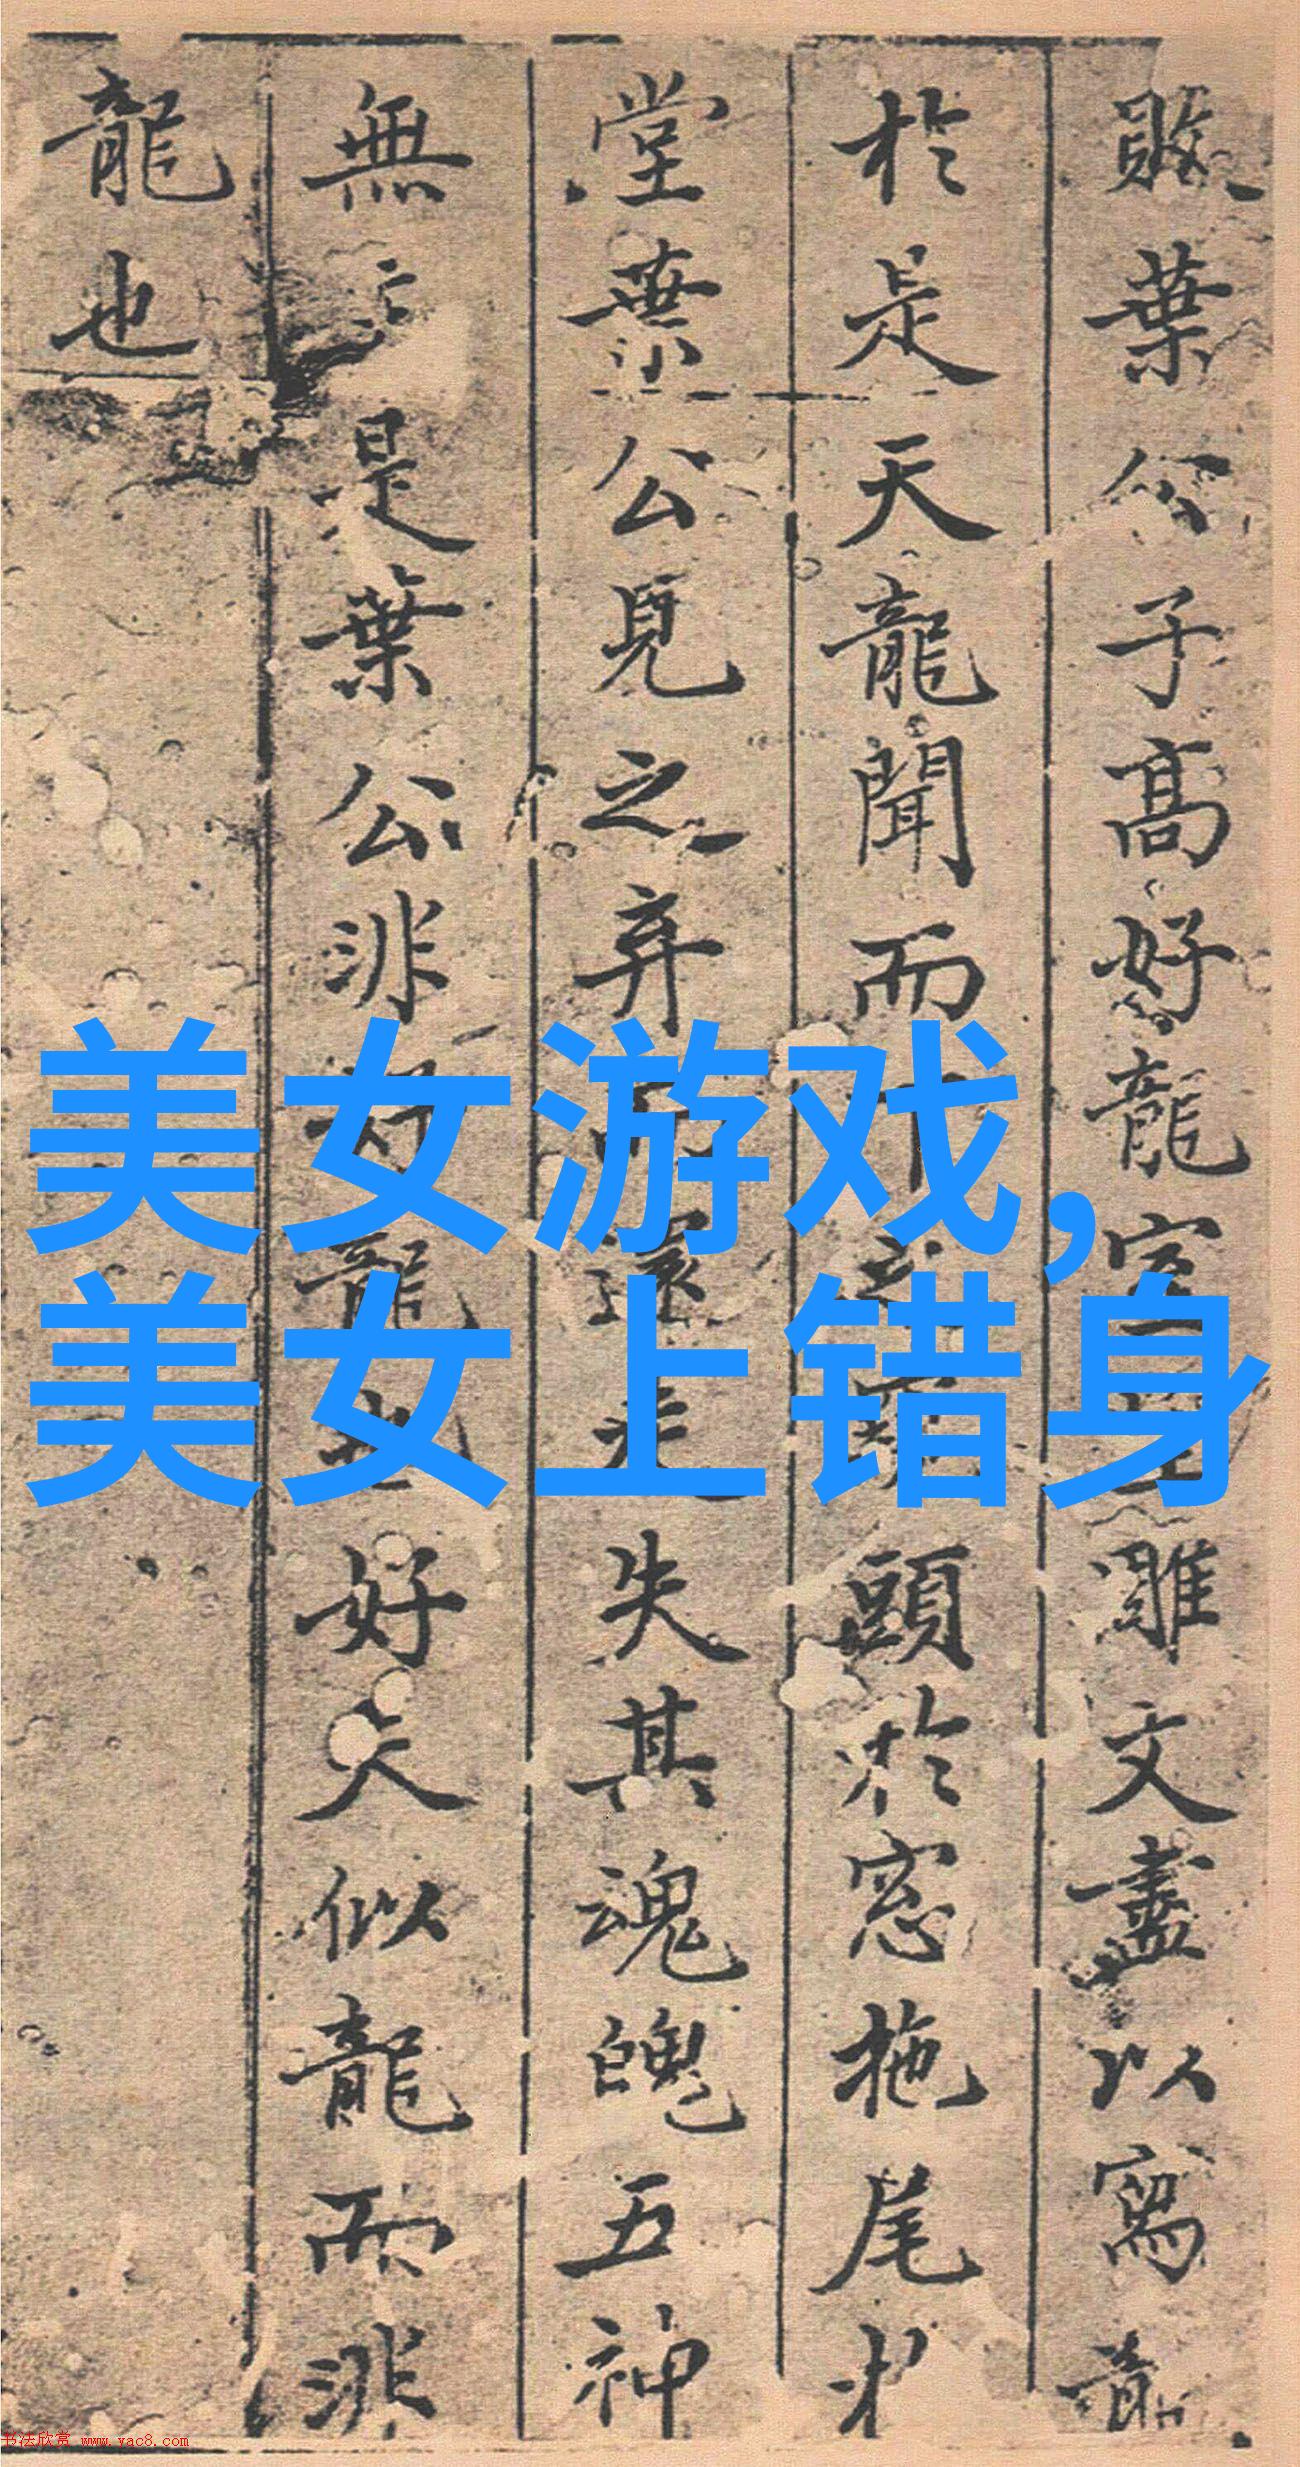 敗葉公子高好龍室雕文盡以寫龍
於是天龍聞而頭於窓拖尾於
堂葉公見之弃還走失其魂魄五神
無主是葉公非好龍也好夫似龍而非
龍也
美女游戏,
美女上错身
书法欣赏 www.yac8.com